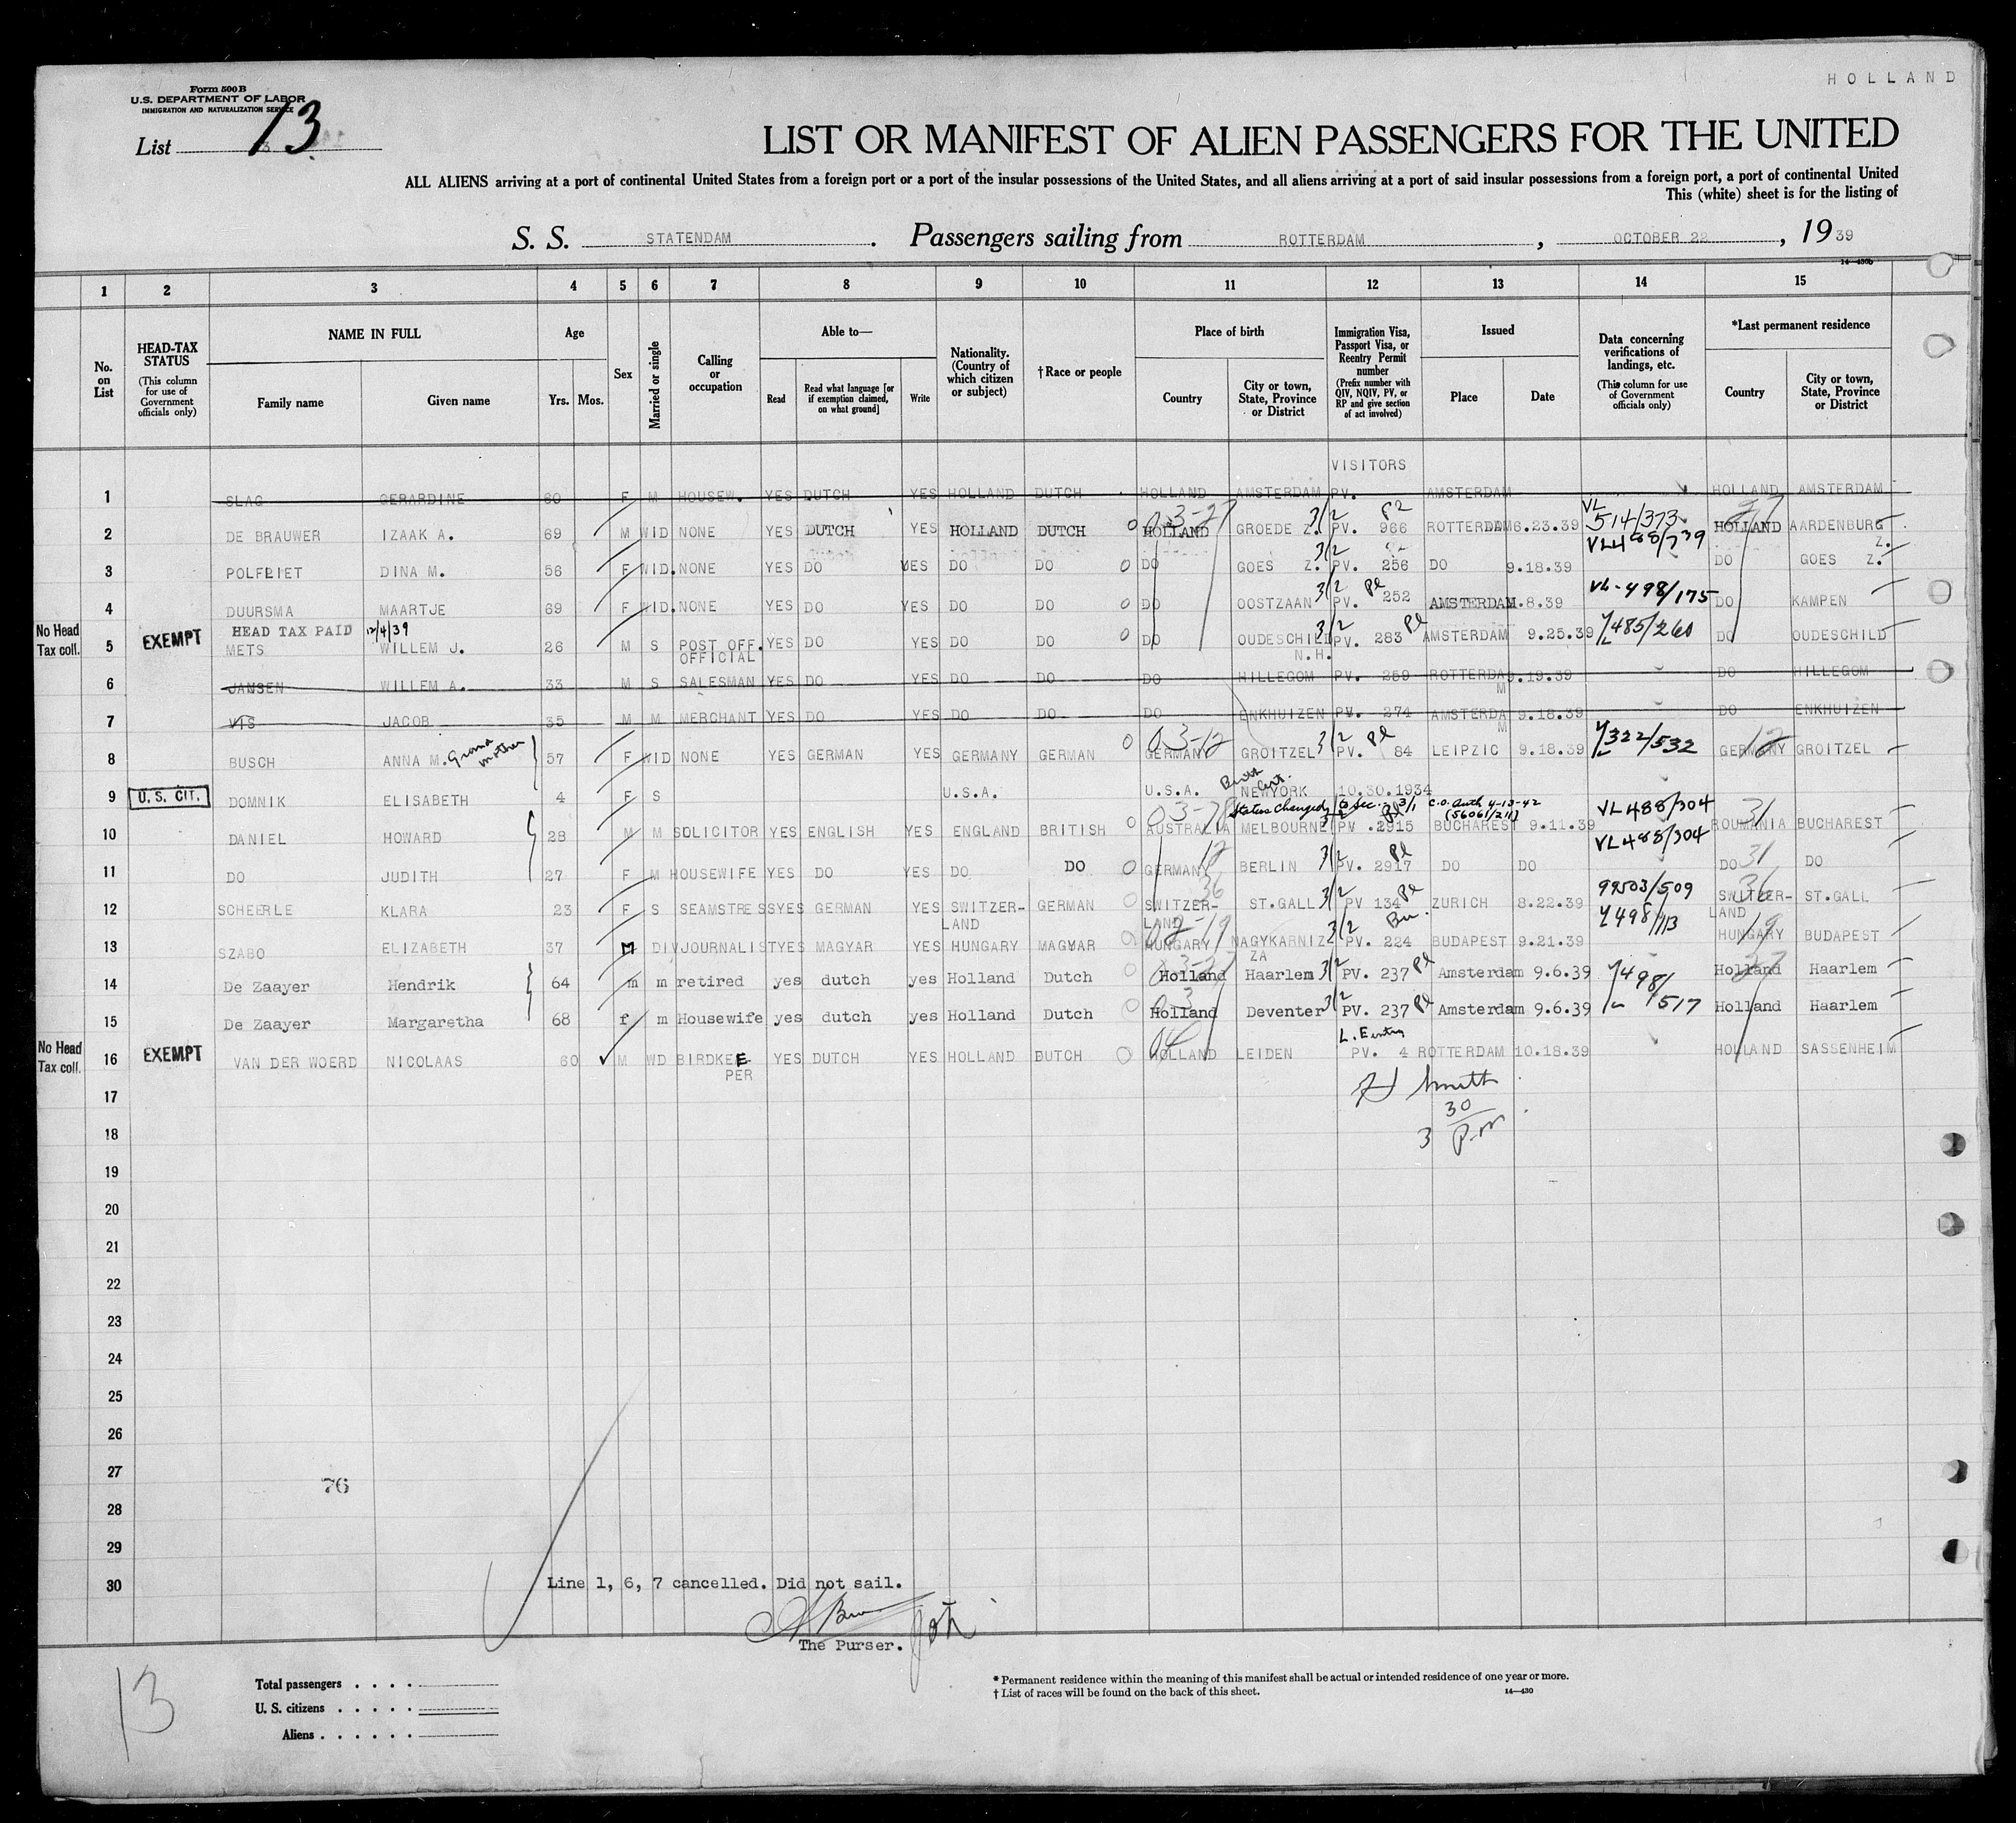 HOLLAND
Form 500 B
U.S. DEPARTMENT OF LABOR
IMMIGRATION AND NATURALIZATION SERVICE
List 13
LIST OR MANIFEST OF ALIEN PASSENGERS FOR THE UNITED
ALL ALIENS arriving at a port of continental United States from a foreign port or a port of the insular possessions of the United States, and all aliens arriving at a port of said insular possessions from a foreign port, a port of continental United
This (white) sheet is for the listing of
S. S. STATENDAM. Passengers sailing from ROTTERDAM, OCTOBER 22, 1939
14—430b
1 2 3 4 5 6 7 8 9 10 11 12 13 14 15
No. on List
HEAD-TAX STATUS (This column for use of Government officials only)
NAME IN FULL
Family name Given name
Age Yrs. Mos.
Sex
Married or single
Calling or occupation
Able to— Read Read what language [or if exemption claimed, on what ground] Write
Nationality. (Country of which citizen or subject)
†Race or people
Place of birth Country City or town, State, Province or District
Immigration Visa, Passport Visa, or Reentry Permit number (Prefix number with QIV, NQIV, PV, or RP and give section of act involved)
Issued Place Date
Data concerning verifications of landings, etc. (This column for use of Government officials only)
*Last permanent residence Country City or town, State, Province or District
VISITORS
1 SLAG GERARDINE 60 F M HOUSEW. YES DUTCH YES HOLLAND DUTCH HOLLAND AMSTERDAM PV. AMSTERDAM HOLLAND AMSTERDAM
03-27 3/2 VL 27
2 DE BRAUWER IZAAK A. 69 M WID NONE YES DUTCH YES HOLLAND DUTCH 0 HOLLAND GROEDE Z. PV. 966 ROTTERDAM 6.23.39 514/373 HOLLAND AARDENBURG Z.
3/2 VL488/739
3 POLFLIET DINA M. 56 F WID. NONE YES DO YES DO DO 0 DO GOES Z. PV. 256 DO 9.18.39 DO GOES Z.
3/2 Pl VL-498/175
4 DUURSMA MAARTJE 69 F WID. NONE YES DO YES DO DO 0 DO OOSTZAAN PV. 252 AMSTERDAM .8.39 DO KAMPEN
No Head Tax coll. EXEMPT HEAD TAX PAID 12/4/39 3/2 Pl
5 METS WILLEM J. 26 M S POST OFF. OFFICIAL YES DO YES DO DO 0 DO OUDESCHILD N.H. PV. 283 AMSTERDAM 9.25.39 485/260 DO OUDESCHILD
6 JANSEN WILLEM A. 33 M S SALESMAN YES DO YES DO DO DO HILLEGOM PV. 259 ROTTERDAM 9.19.39 DO HILLEGOM
7 VIS JACOB 35 M M MERCHANT YES DO YES DO DO DO ENKHUIZEN PV. 274 AMSTERDAM 9.18.39 DO ENKHUIZEN
Grand mother 03-12 3/2 Pl 12
8 BUSCH ANNA M. 57 F WID NONE YES GERMAN YES GERMANY GERMAN 0 GERMANY GROITZEL PV. 84 LEIPZIC 9.18.39 322/532 GERMANY GROITZEL
Birth Cert.
9 U. S. CIT. DOMNIK ELISABETH 4 F S U.S.A. U.S.A. NEWYORK 10.30.1934
Status changed 6 Sec. 3/1 C.O. Auth 4-13-42 (56061/211) VL488/304 31
10 DANIEL HOWARD 28 M M SOLICITOR YES ENGLISH YES ENGLAND BRITISH 0 AUSTRALIA MELBOURNE PV .2915 BUCHAREST 9.11.39 ROUMANIA BUCHAREST
12 3/2 Pl VL488/304 31
11 DO JUDITH 27 F M HOUSEWIFE YES DO YES DO DO 0 GERMANY BERLIN PV. 2917 DO DO DO DO
36 3/2 Pl 99503/509 36
12 SCHEERLE KLARA 23 F S SEAMSTRESS YES GERMAN YES SWITZER-LAND GERMAN SWITZER-LAND ST.GALL PV 134 ZURICH 8.22.39 SWITZER-LAND ST.GALL
3/2 498/113 19
13 SZABO ELIZABETH 37 M DIV JOURNALIST YES MAGYAR YES HUNGARY MAGYAR HUNGARY NAGYKARNIZ ZA PV. 224 BUDAPEST 9.21.39 HUNGARY BUDAPEST
03-27 3/2 Pl 27
14 De Zaayer Hendrik 64 m m retired yes dutch yes Holland Dutch Holland Haarlem PV. 237 Amsterdam 9.6.39 498/517 Holland Haarlem
3/2 Pl
15 De Zaayer Margaretha 68 f m Housewife yes dutch yes Holland Dutch Holland Deventer PV. 237 Amsterdam 9.6.39 Holland Haarlem
No Head Tax coll. EXEMPT
16 VAN DER WOERD NICOLAAS 60 M WD BIRDKEEPER YES DUTCH YES HOLLAND DUTCH HOLLAND LEIDEN PV. 4 ROTTERDAM 10.18.39 HOLLAND SASSENHEIM
17 Smith
18 3 30 P.M
19
20
21
22
23
24
25
26
27
76
28
29
30 Line 1, 6, 7 cancelled. Did not sail.
The Purser.
13
Total passengers
U. S. citizens
Aliens
* Permanent residence within the meaning of this manifest shall be actual or intended residence of one year or more.
† List of races will be found on the back of this sheet.
14—430